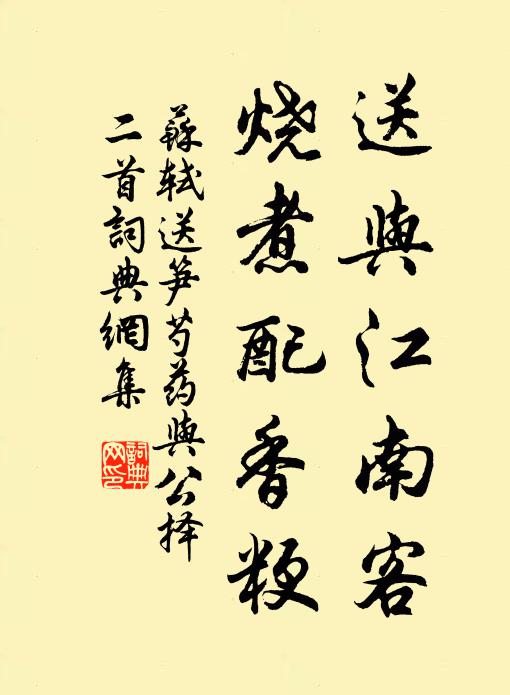 送與江南客
烧煮配香粳
蘇轼送笋芍药與公择
二首詞典網集
詞典
网印